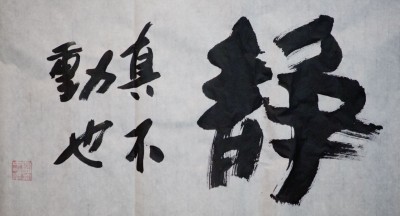 靜
真不
動也